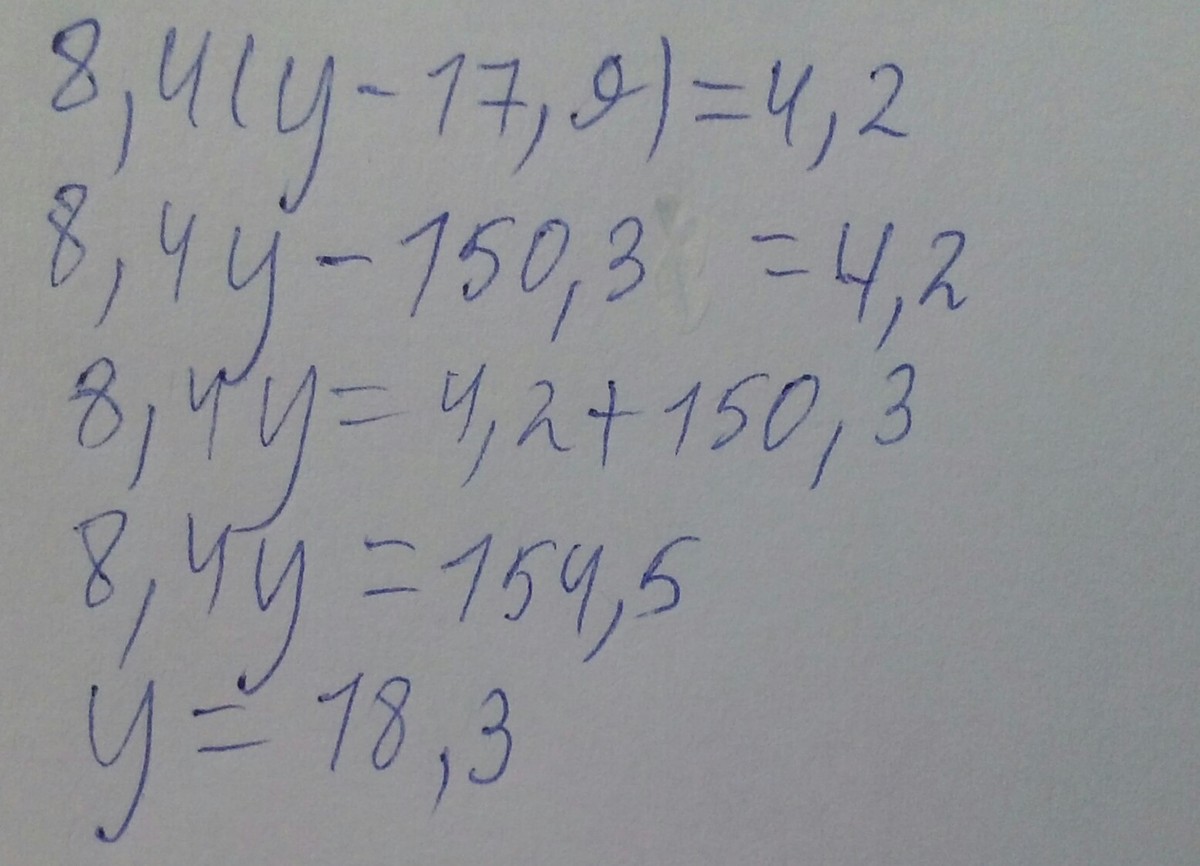 8,4(y-17,9)=4,2
8,4y-150,3 =4,2
8,4y=4,2+150,3
8,4y=154,5
y=18,3